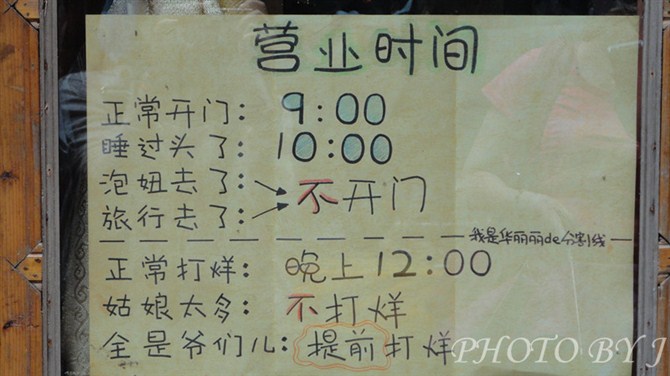 营业时间
正常开门: 9:00
睡过头了: 10:00
泡妞去了:
不开门
旅行去了:
我是华丽丽de分割线
正常打烊: 晚上12:00
姑娘太多: 不打烊
全是爷们儿: 提前打烊
PHOTO BY J